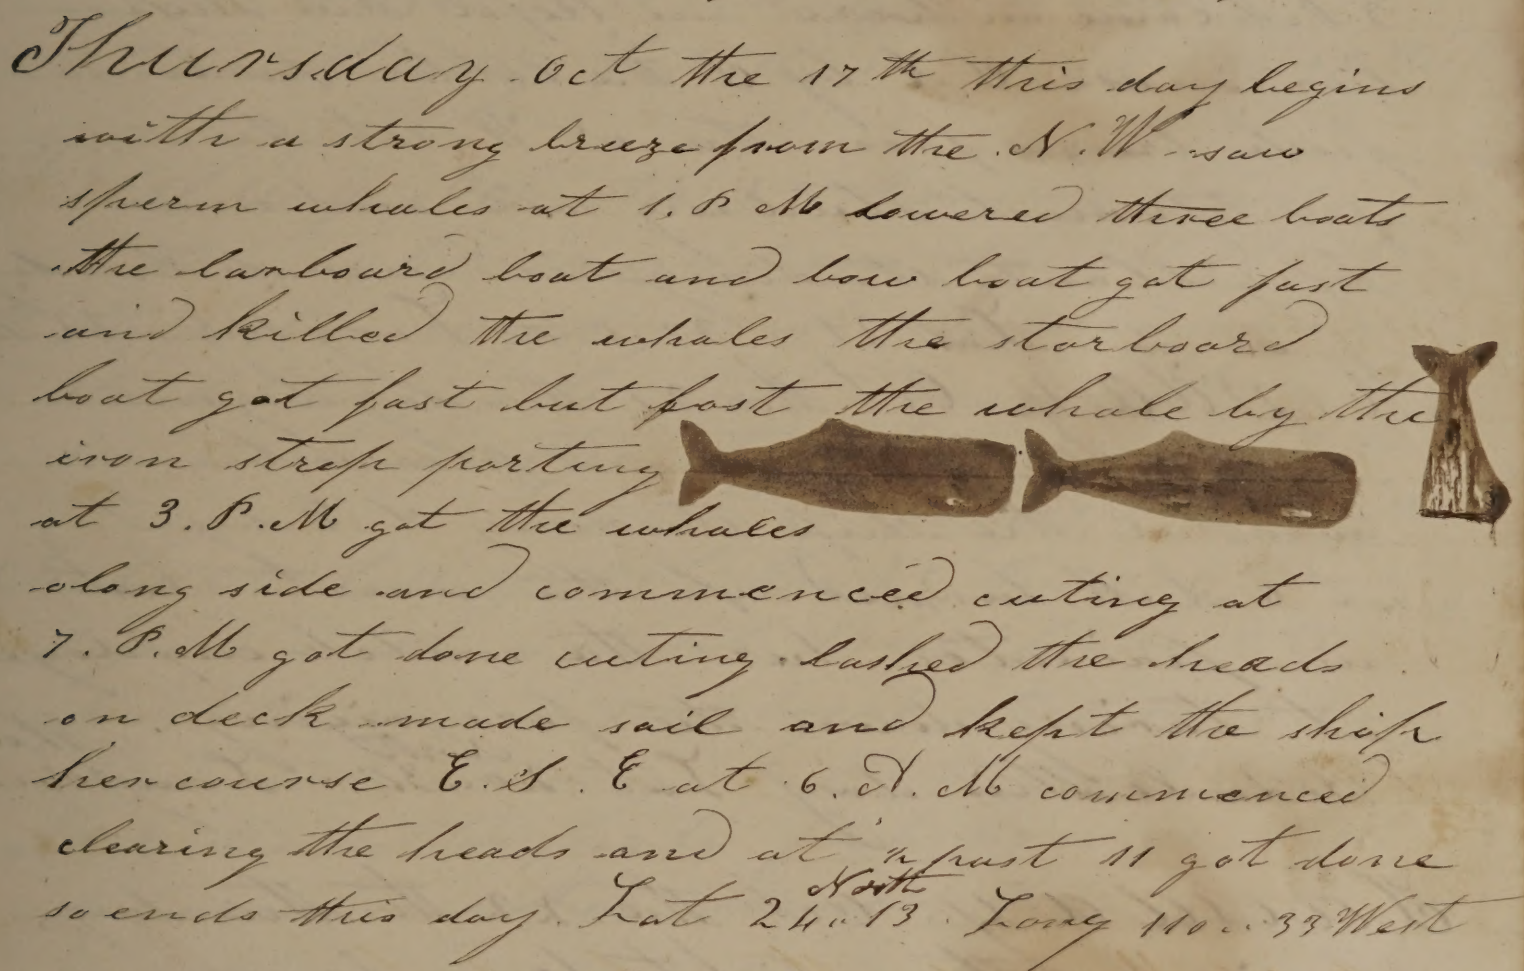 Thursday Oct the 17th this day begins
with a strong breeze from the N. W. saw
sperm whales at 1. P M lowered three boats
the larboard boat and bow boat got fast
and killed the whales the starboard
boat got fast but fost the whale by the
iron strap parting
at 3. P. M got the whales
along side and commenced cuting at
7. P. M got done cuting lashed the heads
on deck made sail and kept the ship
her course E. S. E at 6. A. M commenced
clearing the heads and at past 11 got done
so ends this day. Lat 24 " 13 North Long 110 " 33 West